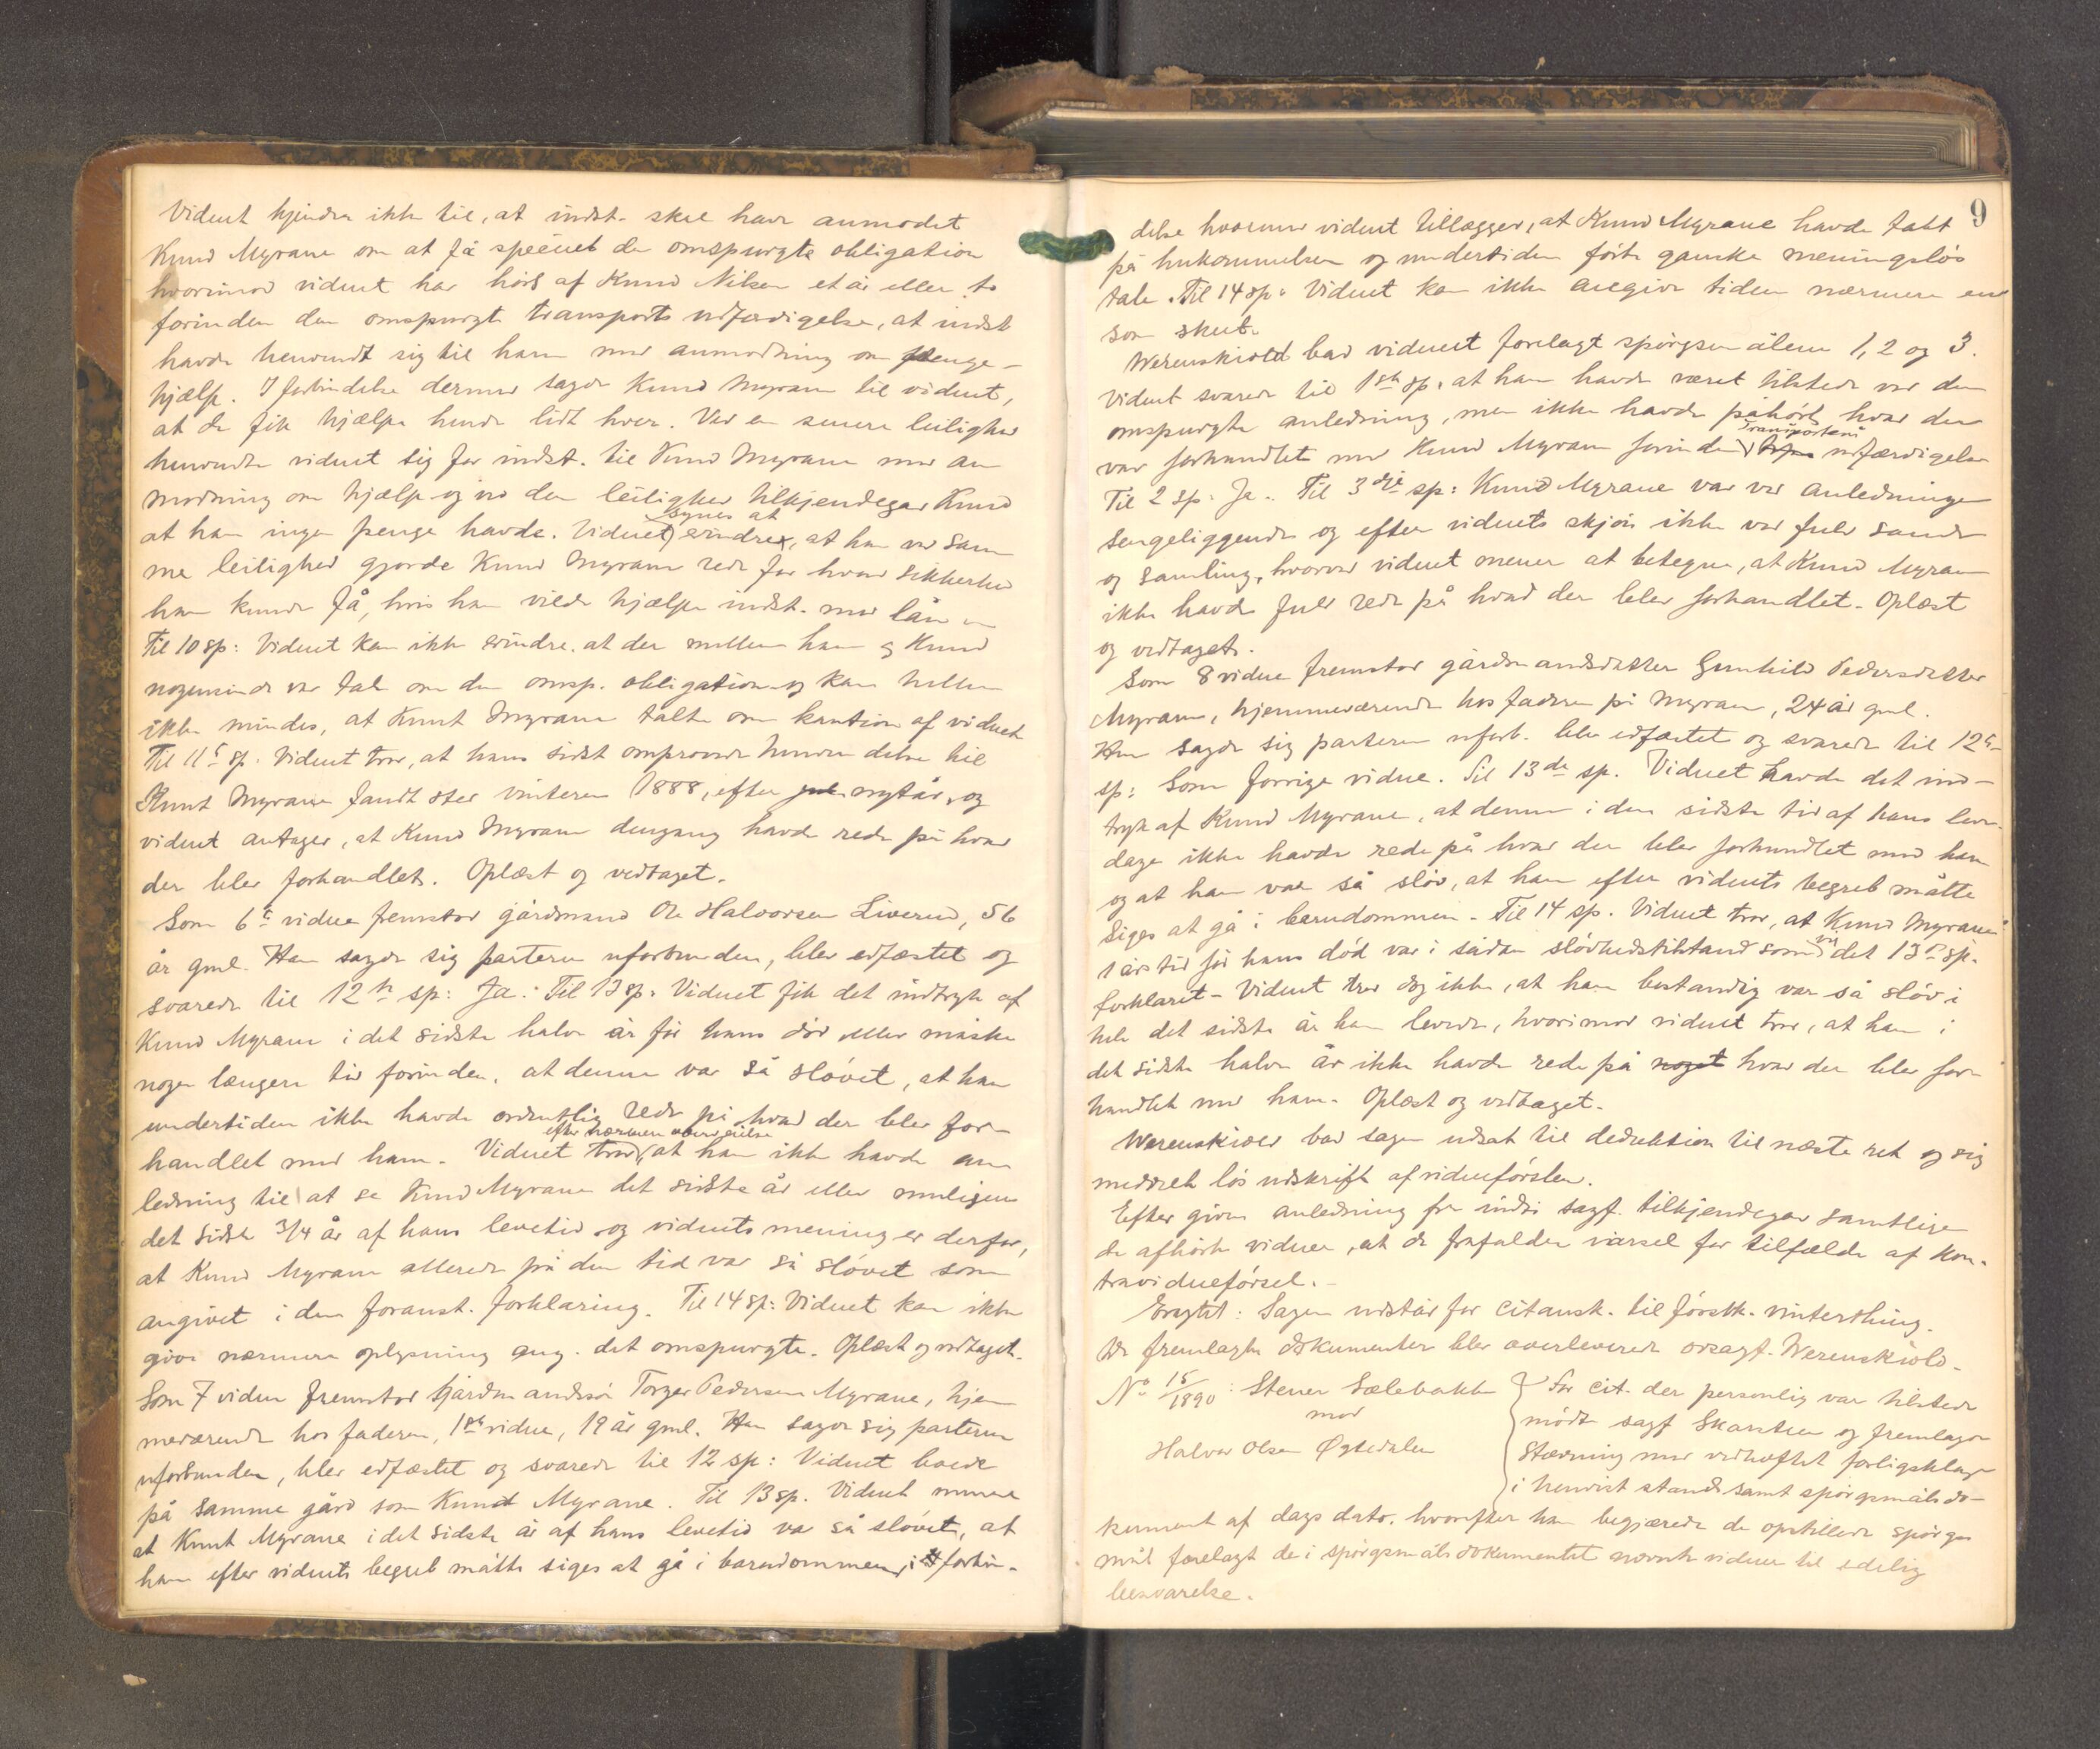 Vidnet kjender ikke til, at indst. skal have anmodet
Knud Myrane om at få speciel den omspurgte obligation
hvorimod vidnet har hørt af Knud Nilsen et år eller to
forinden den omspurgte transports udfærdigelse, at indst
havde henvendt sig til ham med anmodning om penge-
hjælp. I forbindelse dermed sagde Knud Myrane til vidnet,
at de fik hjælpe hende lidt hver. Ved en senere leilighed
henvendte vidnet sig for indst. til Knud Myrane med an
modning om hjælp og ved den leilighed tilkjendegav Knud
at han ingen penge havde. Vidnet synes at erindre, at han ved sam
me leilighed gjorde Knud Myrane rede for hvad sikkerhed
han kunde få, hvis han vilde hjælpe indst. med lån
Til 10 sp: Vidnet kan ikke erindre at der mellem ham og Knud
nogensinde var tale om den omsp. obligation og kan heller
ikke mindes, at Knut Myrane talte om kaution af vidnet
Til 11te sp. Vidnet tror, at hans sidst omprovede henvendelse til
Knut Myrane fandt sted vinteren 1888, efter nytår, og
vidnet antager, at Knud Myrane dengang havde rede på hvad
der blev forhandlet. Oplæst og vedtaget.
Som 6te vidne fremstod gårdmand Ole Halvorsen Liverud, 56
år gml. Han sagde sig parterne uforbunden, blev edfæstet og
svarede til 12te sp: Ja. Til 13 sp: Vidnet fik det indtryk af
Knud Myrane i det sidste halve år før hans død eller måske
nogen længere tid forinden, at denne var så sløvet, at han
undertiden ikke havde ordentlig rede på hvad der blev for-
handlet med ham. Vidnet tror efter nærmere overveielse, at han ikke havde an
ledning til at se Knud Myrane det sidste år eller muligens
det sidste 3/4 år af hans levetid og vidnets mening er derfor,
at Knud Myrane allerede på den tid var så sløvet som
angivet i den foranst. forklaring. Til 14 sp: Vidnet kan ikke
give nærmere oplysning ang. det omspurgte. Oplæst og vedtaget.
Som 7 vidne fremstod Gårdmandssøn Torger Pedersen Myrane, hjem
meværende hos faderen, 1ste vidne, 19 år gml. Han sagde sig parterne
uforbunden, blev edfæstet og svarede til 12 sp: Vidnet boede
på samme gård som Knut Myrane. Til 13 sp. Vidnet mener
at Knut Myrane i det sidste år af hans levetid var så sløvet, at
han efter vidnets begreb måtte siges at gå i barndommen, i forbin-
9
delse hvormed vidnet tillægger, at Knud Myrane havde tabt
på hukommelsen og undertiden førte ganske meningsløs
tale. Til 14 sp: Vidnet kan ikke angive tiden nærmere end
som skeet.
Werenskiold bad vidnet forelagt spørgsmålene 1, 2 og 3.
Vidnet svarede til 1ste sp. at han havde været tilstede ved den
omspurgte anledning, men ikke havde påhørt hvad der
var forhandlet med Knud Myrane forinden transportens udfærdigelse
Til 2 sp: Ja. Til 3die sp: Knud Myrane var ved anledningen
sengeliggende og efter vidnets skjøn ikke ved fuld sands
og samling, hvorved vidnet mener at betegne, at Knud Myrane
ikke havde fuld rede på hvad der blev forhandlet. Oplæst
og vedtaget.
Som 8 vidne fremstod gårdmandsdatter Gunhild Pedersdatter
Myrane, hjemmeværende hos faderen på Myrane, 24 år gml.
Hun sagde sig parterne uforb. blev edfæstet og svarede til 12te
sp: Som forrige vidne. Til 13de sp. Vidnet havde det ind-
tryk af Knud Myrane, at denne i den sidste tid af hans leve-
dage ikke havde rede på hvad der blev forhandlet med ham
og at han var så sløv, at han efter vidnets begreb måtte
siges at gå i barndommen. Til 14 sp. Vidnet tror, at Knud Myrane
1 års tid før hans død var i sådan sløvhedstilstand som ved det 13de sp.
forklaret. Vidnet tror dog ikke, at han bestandig var så sløv i
hele det sidste år han levede, hvorimod vidnet tror, at han i
det sidste halve år ikke havde rede på noget hvad der blev for-
handlet med ham. Oplæst og vedtaget.
Werenskiold bad sagen udsat til deduktion til næste ret og sig
meddelt løs udskrift af vidneførslen.
Efter given anledning fra indst. sagf. tilkjendegav samtlige
de afhørte vidner, at de frafalder varsel for tilfælde af kon-
travidneførsel.
Eragtet: Sagen udstår for citansk. til førstk. vinterthing.
De fremlagte dokumenter blev overleveret ovsagf. Werenskiold.
No 15/1890: Stener Sælebakke
mod
Halvor Olsen Øgtedalen
For cit. der personlig var tilstede
mødte sagf Skarstein og fremlagde
stævning med vedhæftet forligsklage
i henvist stand samt spørgsmålsdo-
kument af dags dato, hvorefter han begjærede de opstillede spørgs
mål forelagt de i spørgsmålsdokumentet nævnte vidner til edelig
besvarelse.